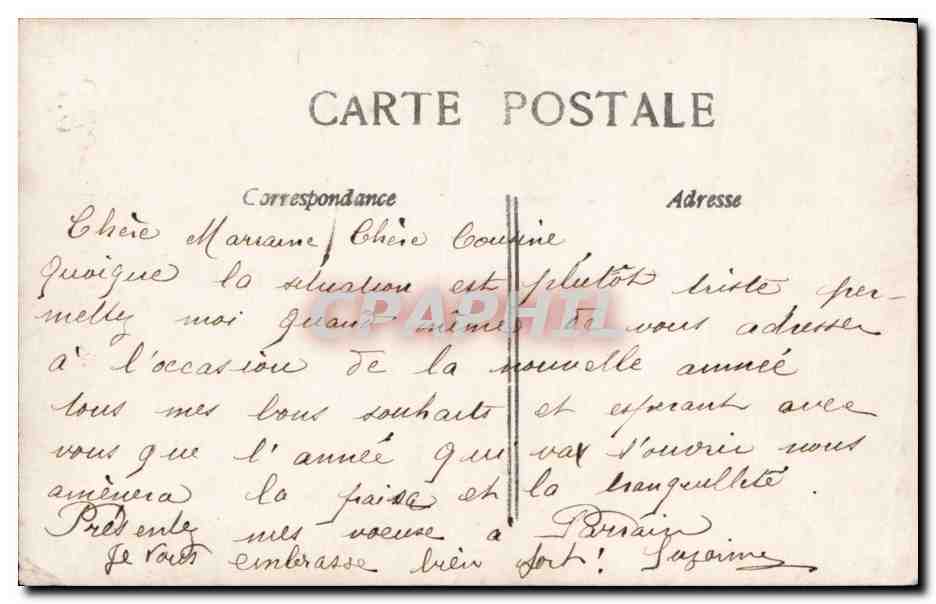 CARTE POSTALE
Correspondance
Adresse
Chère Marraine, Chère Cousine
Quoique la situation est plutôt triste per-
mettez moi quand même de vous adresser
à l'occasion de la nouvelle année
tous mes bons souhaits et esperant avec
vous que l'année qui va s'ouvrir nous
amènera la paix et la tranquillité.
Présentez mes voeux à Parrain
Je vous embrasse bien fort! Suzanne
CPAPHIL